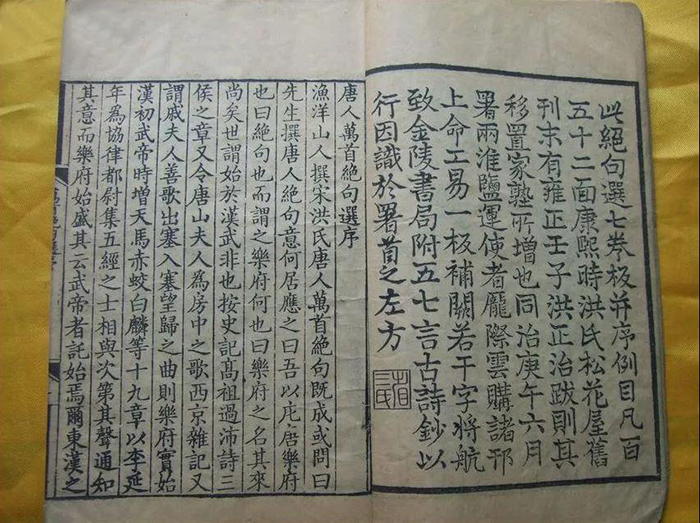 此絕句選七卷板并序例目凡百
五十二面康熙時洪氏松花屋舊
刊末有雍正壬子洪正治跋則其
移置家塾所增也同治庚午六月
署兩淮鹽運使者龐際雲購諸邗
上命工易一板補闕若干字將航
致金陵書局附五七言古詩鈔以
行因識於署首之左方
唐人萬首絕句選序
漁洋山人撰宋洪氏唐人萬首絕句既成或問曰
先生撰唐人絕句意何居應之曰吾以庀唐樂府
也曰絕句也而謂之樂府何也曰樂府之名其來
尚矣世謂始於漢武非也按史記髙祖過沛詩三
侯之章又令唐山夫人為房中之歌西京雜記又
謂戚夫人善歌出塞入塞望歸之曲則樂府實始
漢初武帝時增天馬赤蛟白麟等十九章以李延
年為協律都尉集五經之士相與次第其聲通知
其意而樂府始盛其云武帝者託始焉爾東漢之